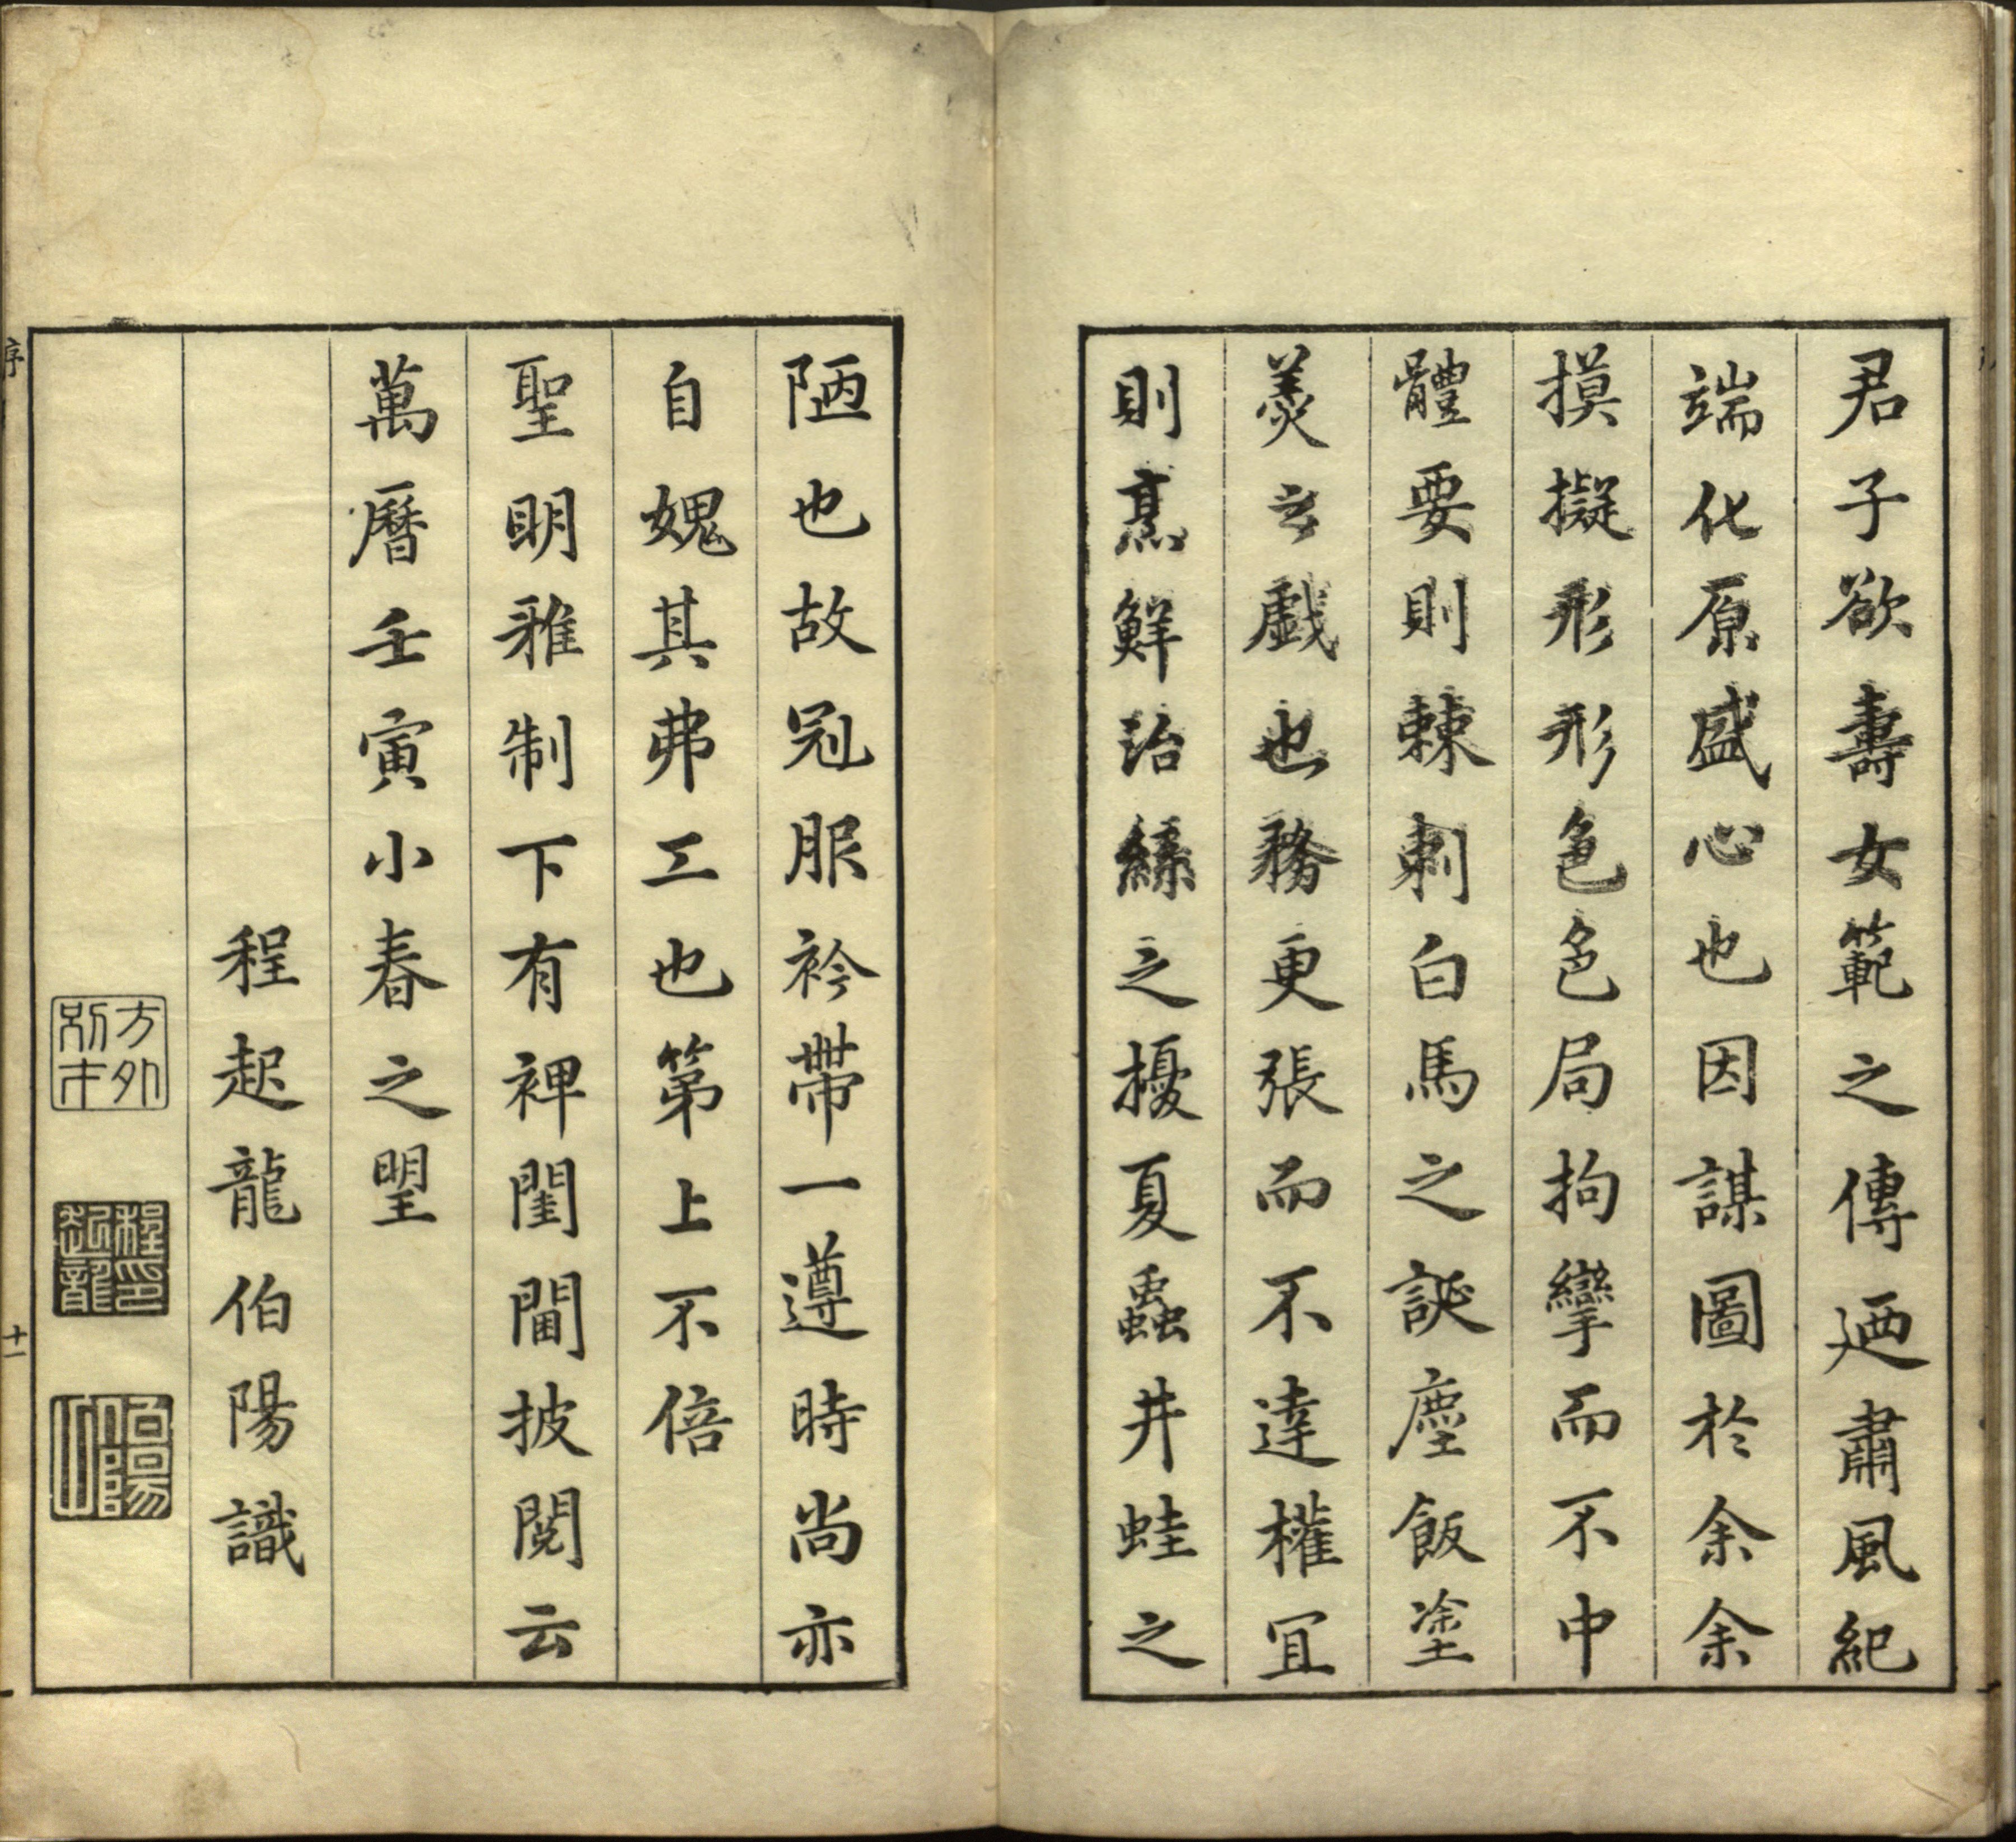 君子欲壽女範之傳廼肅風紀
端化原盛心也因謀圖於余余
摸擬形形色色局拘攣而不中
體要則棘刺白馬之誕塵飯塗
羹之戲也務更張而不達權宜
則烹鮮治絲之擾夏蟲井蛙之
陋也故冠服衿帶一遵時尚亦
自媿其弗工也第上不倍
聖明雅制下有裨閨閫披閱云
萬曆壬寅小春之朢
程起龍伯陽識
方外
別才
程印
起龍
伯陽
序
十一